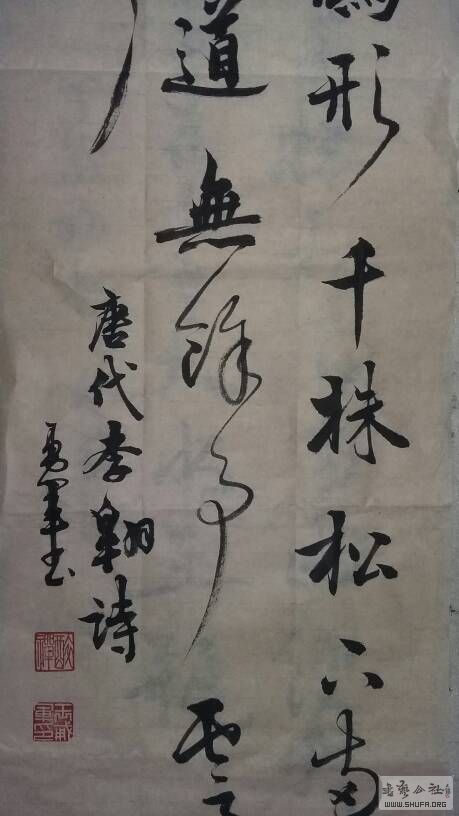 形千株松下兩
道無餘事雲
唐代李翱詩
勇軍书
书艺公社
WWW.SHUFA.ORG